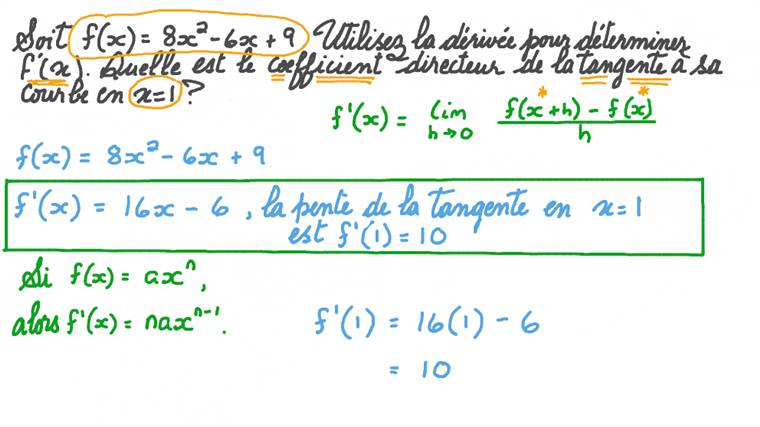 Soit f(x) = 8x² - 6x + 9 Utilisez la dérivée pour déterminer
f'(x). Quelle est le coefficient directeur de la tangente à sa
courbe en x=1 ?
f'(x) = lim h→0 (f(x+h) - f(x))/h
f(x) = 8x² - 6x + 9
f'(x) = 16x - 6 , la pente de la tangente en x=1
est f'(1) = 10
Si f(x) = axⁿ,
alors f'(x) = naxⁿ⁻¹.
f'(1) = 16(1) - 6
= 10